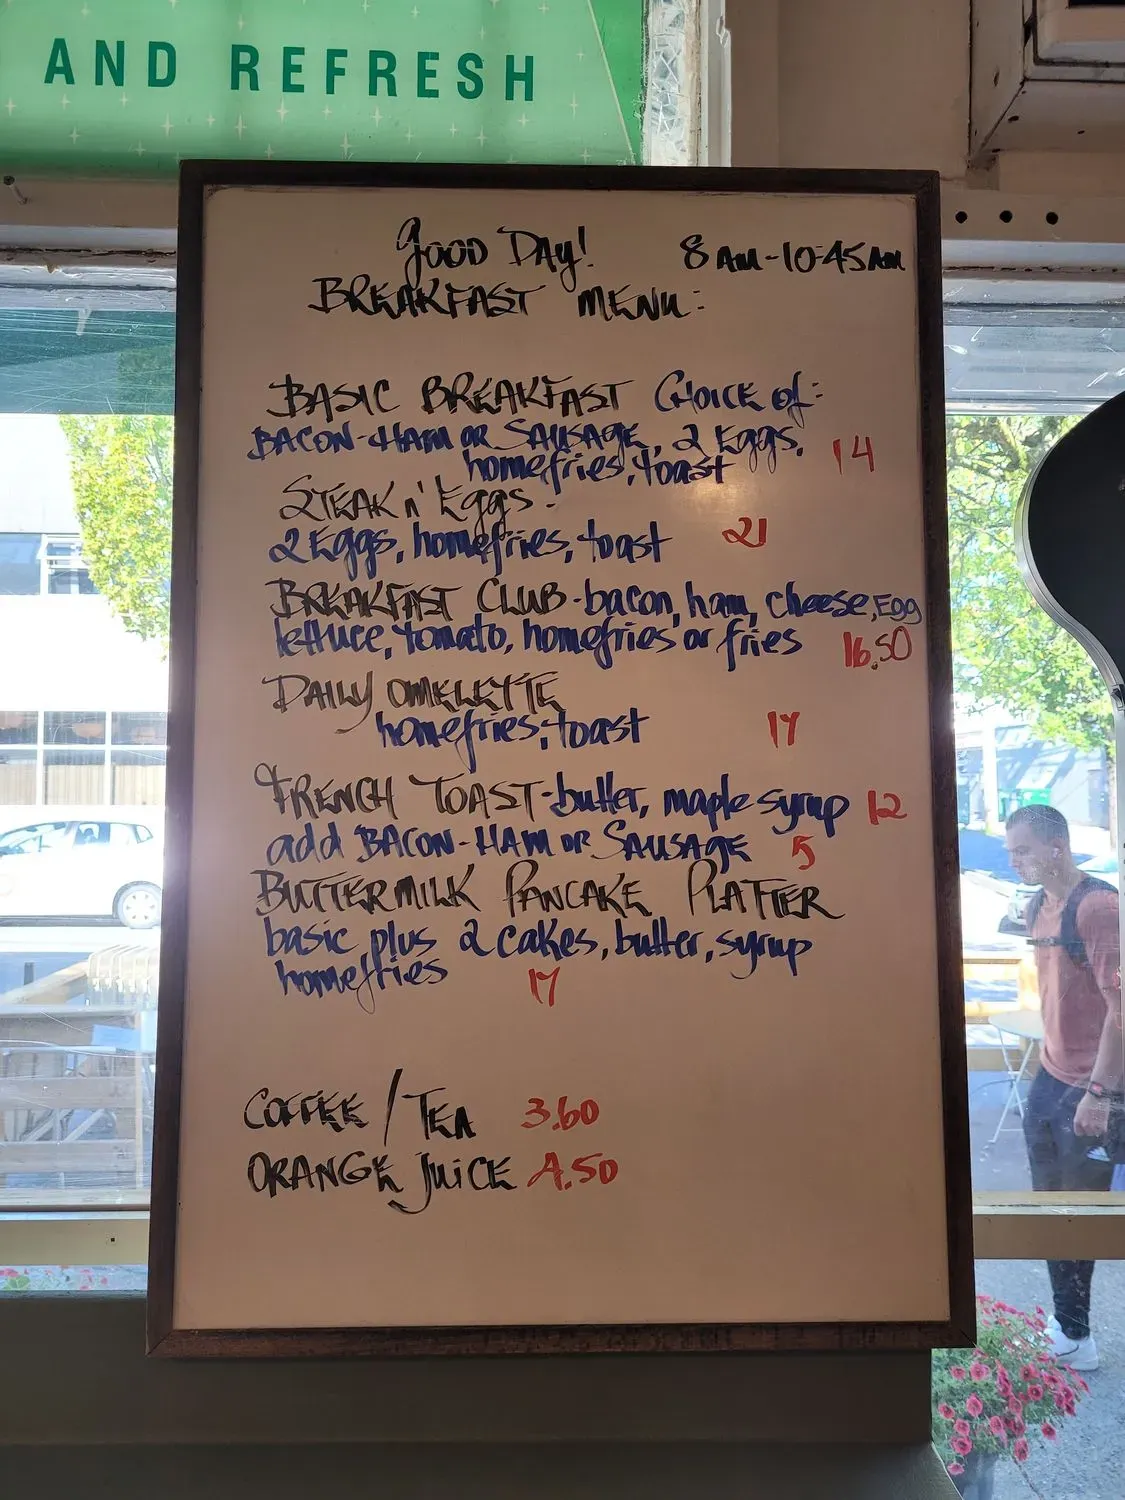 AND REFRESH
Good Day! 8 AM-10:45AM
BREAKFAST MENU:
BASIC BREAKFAST CHOICE of:
BACON-HAM OR SAUSAGE, 2 Eggs,
homefries, toast 14
STEAK n' Eggs-
2 Eggs, homefries, toast 21
BREAKFAST CLUB-bacon, ham, cheese, Egg
lettuce, tomato, homefries or fries 16.50
DAILY OMELETTE
homefries, toast 17
FRENCH TOAST-butter, maple syrup 12
add BACON-HAM OR SAUSAGE 5
BUTTERMILK PANCAKE PLATTER
basic plus 2 cakes, butter, syrup
homefries 17
COFFEE / TEA 3.60
ORANGE JUICE 4.50